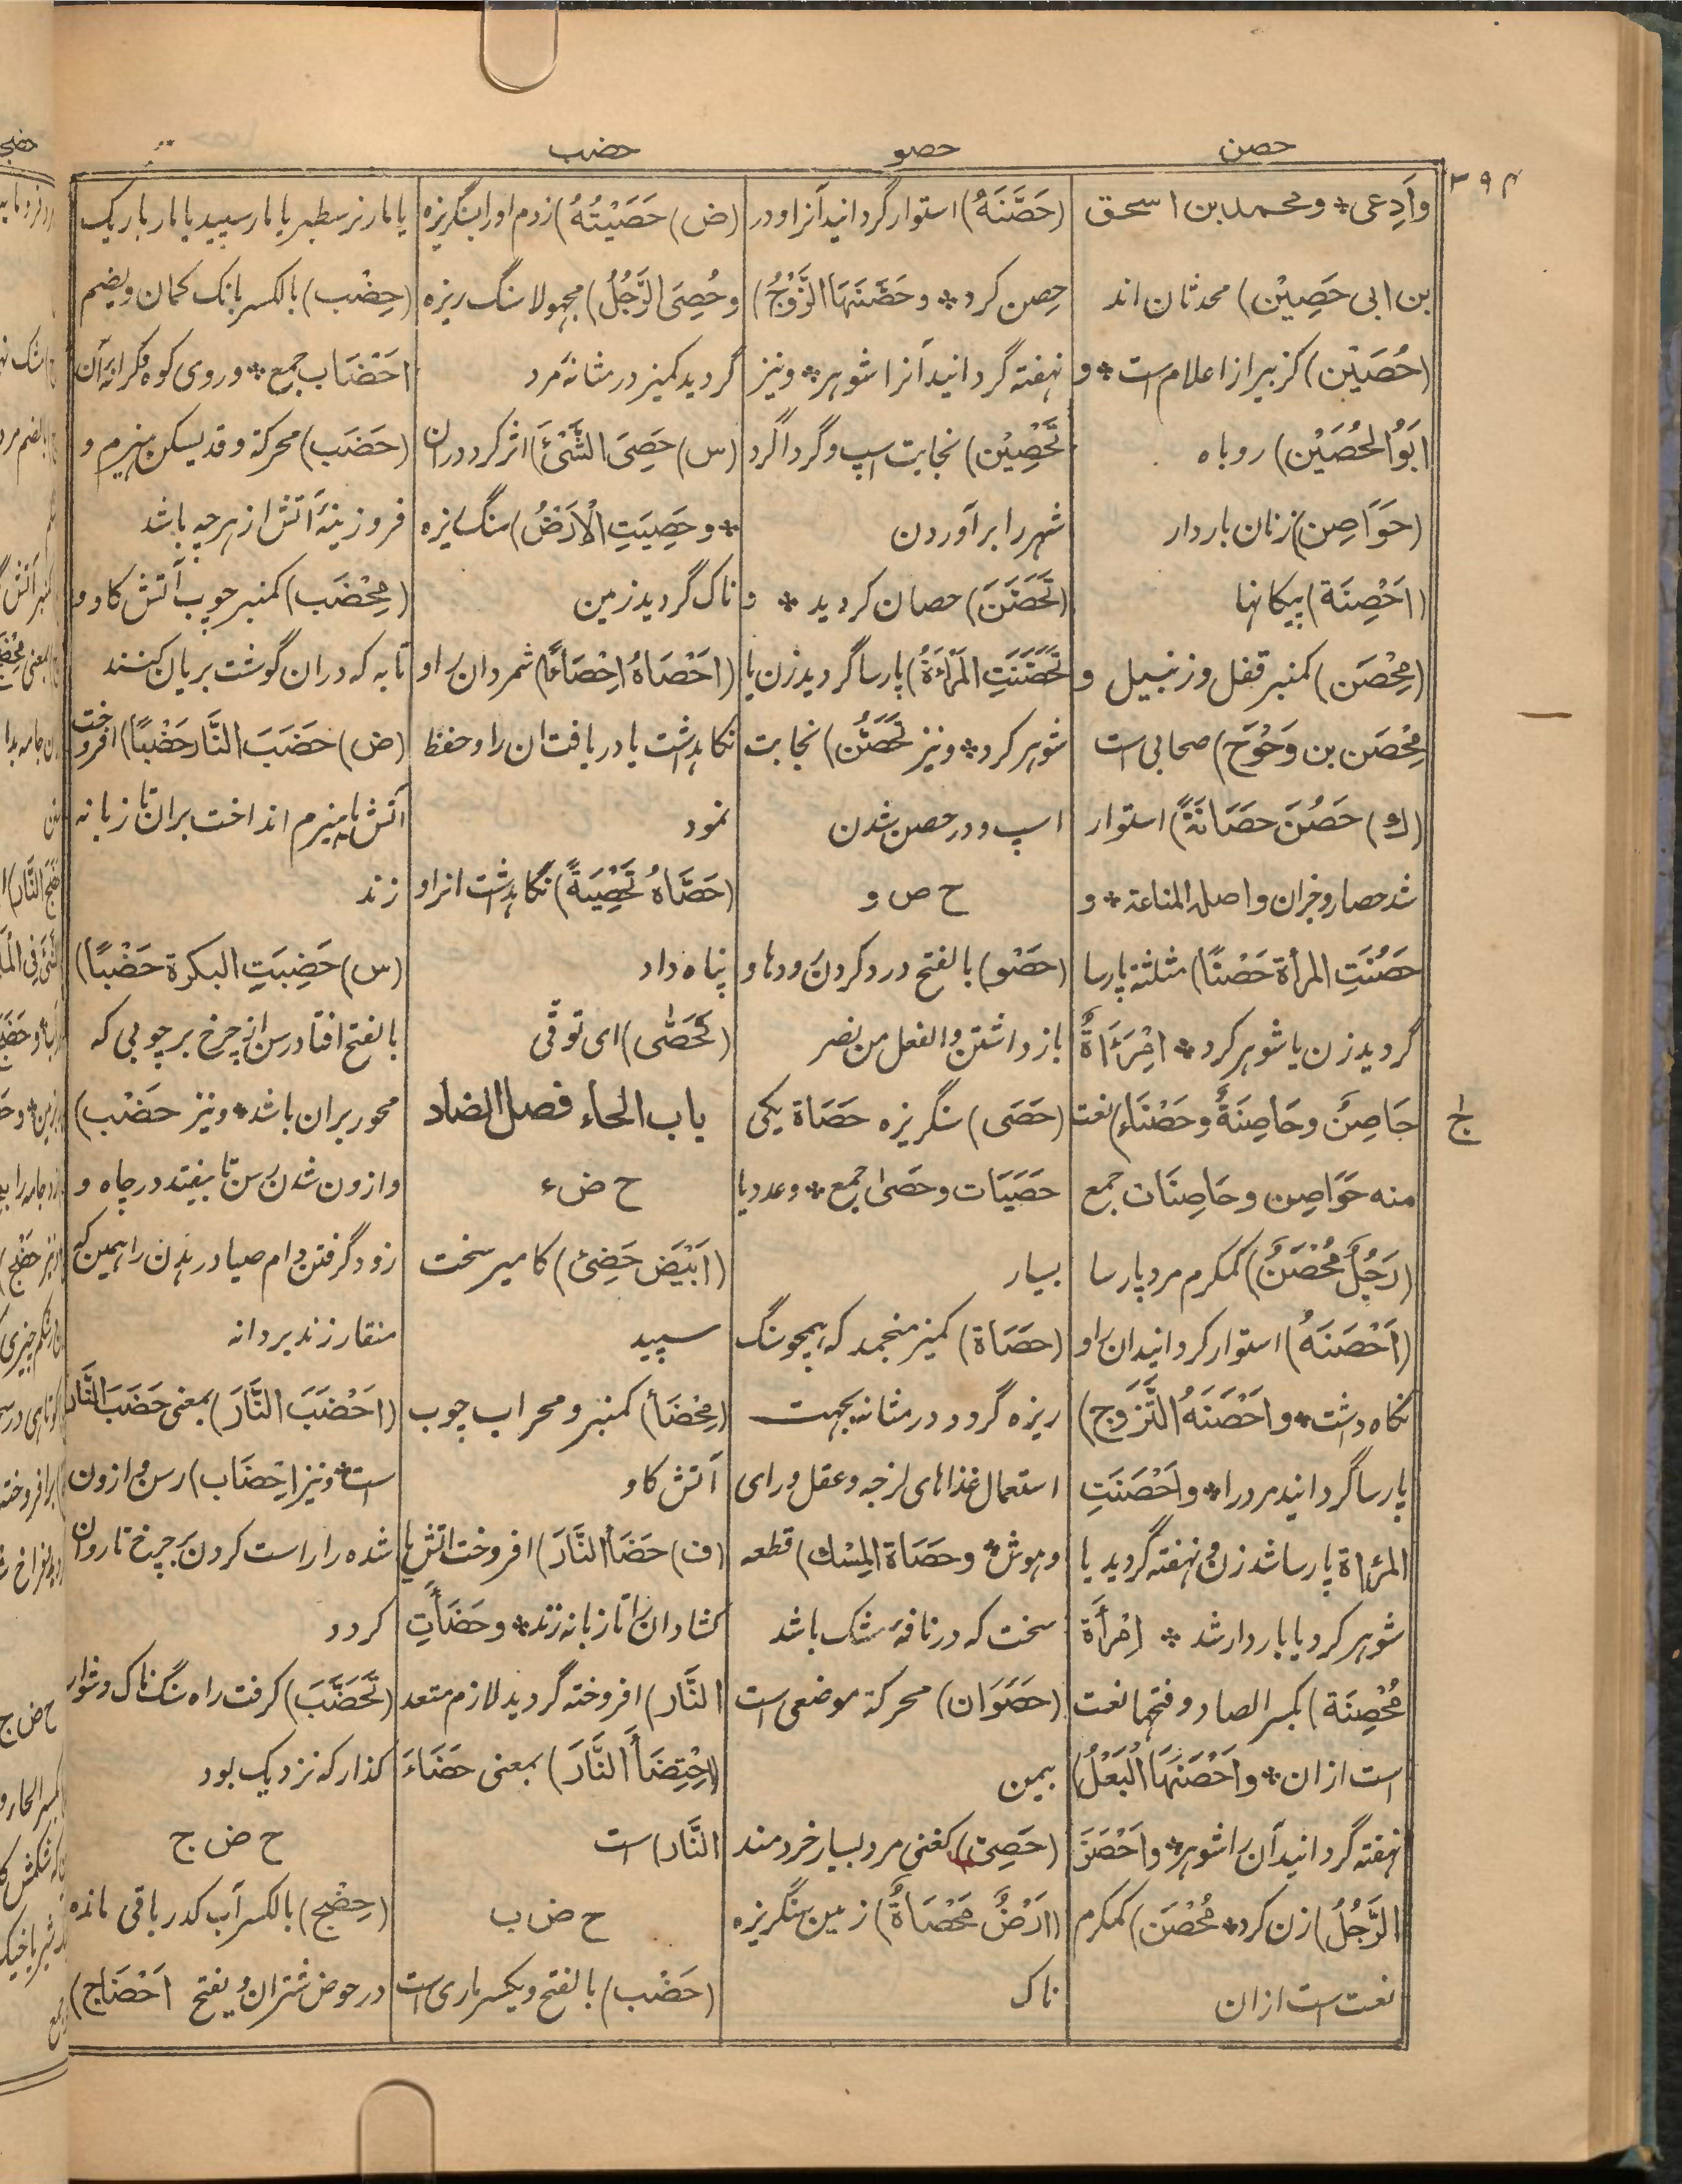 حصن
حصو
حضب
۳۹۴
وَادِعی* ومحمد بن اسحق
بن ابی حَصِیْن) محدثان اند
(حُصَیْن) کزبیر از اعلام است* و
اَبُو الحُصَیْن) روباه
(حَوَاصِن) زنان باردار
(اَحْصِنَة) پیکانها
(مِحْصَن) کمنبر قفل وزنبیل و
مِحْصَن بن وَحْوَح) صحابی است
(ك) حَصُنَ حَصَانَةً) استوار
شد حصار وجزان واصله المناعة* و
حَصُنَتِ المرأة حَصْنًا) مثلثة پارسا
گردید زن یا شوهر کرد* اِمْرَءَاةٌ
حَاصِنٌ وحَاصِنَةٌ وحَصْنَاء) نعت
منه حَوَاصِن وحَاصِنَات جمع
(رَجُلٌ مُحْصَنٌ) کمکرم مرد پارسا
(اَحْصَنَهُ) استوار کردانید ان را و
نگاه داشت* واَحْصَنَهُ التَّزَوّج)
پارسا گردانید مرد را* واَحْصَنَتِ
المَرْاة پارسا شد زن و نهفته گردید یا
شوهر کرد یا باردار شد * اِمْرأَة
مُحْصِنَة) بکسر الصاد وفتحها نعت
است ازان* واَحْصَنَهَا الْبَعْلُ)
نهفته گردانید آن را شوهر* واَحْصَنَ
الرَّجُلُ) زن کرد* مُحْصَن) کمکرم
نعت است ازان
ج
(حَصَّنَهُ) استوار گردانید آنرا ودر
حِصن کرد* وحَصَّنَهَا الزَّوْجُ)
نهفته گردانید آنرا شوهر* ونیز
تَحْصِیْن) نجابت اسپ وگرداگرد
شهر را برآوردن
(تَحَصَّنَ) حصان کردید * و
تَحَصَّنَتِ المَرْاَةُ) پارسا گردید زن یا
شوهر کرد* ونیز تَحَصُّن) نجابت
اسپ ودر حصن شدن
ح ص و
(حَصْو) بالفتح درد کردن رودها و
بازداشتن والفعل من نصر
(حَصَی) سنگریزه حَصَاة یکی
حَصَیَات وحَصًی جمع* وعدد یا
بسیار
(حَصَاة) کمیز منجمد که همچو سنگ
ریزه گردد در مثانه بجهت
استعمال غذاهای لزجه وعقل ورای
وهوش* وحَصَاة المِسْك) قطعه
سخت که در نافۀ مشک باشد
(حَصَوَان) محرکة موضعی است
بیمن
(حَصِیّ) کغنی مرد بسیار خردمند
(اَرْضٌ مَحْصَاةٌ) زمین سنگریزه
ناک
(ض) حَصَیْتُهُ) زدم اورا بسنگریزه
وحُصِیَ الرَّجُلُ) مجهولا سنگ ریزه
گردید کمیز در مثانه مرد
(س) حَصِیَ الشَّیْئُ) اثر کرد دران
* وحَصِیَتِ الْاَرْضُ) سنگ ریزه
ناک گردید زمین
(اَحْصَاهُ اِحْصَاءً) شمرد ان را و
نگاهداشت یا دریافت ان را وحفظ
نمود
(حَصَّاهُ تَحْصِیَةً) نگاهداشت انرا و
پناه داد
(تَحَصّٰی) ای توقّی
باب الحاء فصل الضاد
ح ض ء
(اَبْیَض حَضِیْ) کامیر سخت
سپید
(مِحْضَأ) کمنبر ومحراب چوب
آتش کاو
(ف) حَضَأ النَّارَ) افروخت اتش یا
کشاد ان را تا زبانه زند* وحَضَأَتِ
النَّار) افروخته گردید لازم متعد
(اِحْتِضَأَ النَّارَ) بمعنی حَضَاءَ
النَّار) است
ح ض ب
(حَضْب) بالفتح ویکسر ماری است
یا مار نر سطبر یا مار سپید یا مار باریک
(حِضْب) بالکسر بانک کمان ویضم
اَحْضَاب جمع* وروی کوه وکرانۀ آن
(حَضَب) محرکة وقد یسکن هیزم و
فروزینۀ آتش از هرچه باشد
(مِحْضَب) کمنبر چوب آتش کاو و
تابه که دران گوشت بریان کنند
(ض) حَضَبَ النَّار حَضْبًا) افروخت
آتش یا هیزم انداخت بران تا زبانه
زند
(س) حَضِبَتِ البکرة حَضْبًا)
بالفتح افتاد رسن از چرخ بر چوبی که
محور بران باشد* ونیز حَضْب)
واژون شدن رسن تا بیفتد در چاه و
زود گرفتن دام صیاد ریدن را همین که
منقار زند بر دانه
(اَحْضَبَ النَّارَ) بمعنی حَضَبَ النَّار
است* ونیز اِحْضَاب) رسن واژون
شده را راست کردن بر چرخ تا روان
کردد
(تَحَضَّبَ) کرفت راه سنگ ناک ودشوار
کذار که نزدیک بود
ح ض ج
(حِضْج) بالکسر آب کدر باقی مانده
در حوض شتران ویفتح اَحْضَاج)